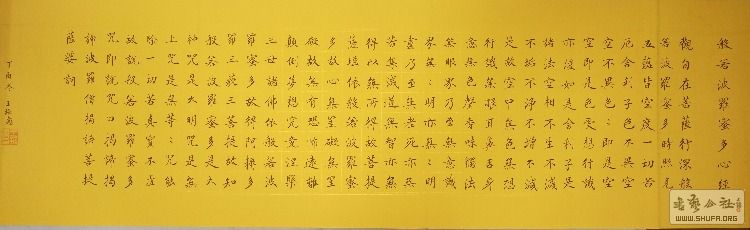 般若波羅蜜多心經
觀自在菩薩行深般
若波羅蜜多時照見
五蘊皆空度一切苦
厄舍利子色不異空
空不異色々即是空
空即是色受想行識
亦復如是舍利子是
諸法空相不生不滅
不垢不淨不增不減
是故空中無色無想
行識無眼耳鼻舌身
意無色聲香味觸法
無眼界乃至無意識
界無々明亦無々明
盡乃至無老死亦無
苦集滅道無智亦無
得以無所得故菩提
薩埵依般若波羅蜜
多故心無罣礙無罣
礙故無有恐怖遠離
顛倒夢想究竟涅槃
三世諸佛依般若波
羅蜜多故得阿耨多
羅三藐三菩提故知
般若波羅蜜多是大
神咒是大明咒是無
上咒是無等々咒能
除一切苦真實不虛
故說般若波羅蜜多
咒即說咒曰揭諦揭
諦波羅僧揭諦菩提
薩婆訶
丁酉冬 王
WWW.SHUFA.ORG